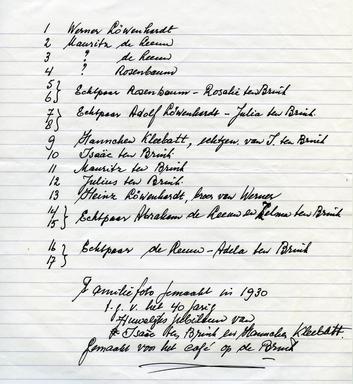 1 Werner Löwenhardt
2 Mauritz de Leeuw
3 ? de Leeuw
4 ? Rosenbaum
5 } Echtpaar Rosenbaum - Rosalie ten Brink
6
7 } Echtpaar Adolf Löwenhardt - Julia ten Brink
8
9 Hannchen Kleebatt, echtgen. van I. ten Brink
10 Isaäc ten Brink
11 Mauritz ten Brink
12 Julius ten Brink
13 Heinz Löwenhardt, broer van Werner
14 } Echtpaar Abraham de Leeuw en Selma ten Brink
15
16 } Echtpaar de Leeuw - Adela ten Brink
17
Familiefoto gemaakt in 1930
t.g.v. het 40 jarig
Huwelijks jubileum van
Isaäc ten Brink en Hannchen Kleebatt.
Gemaakt voor het café op de Brink